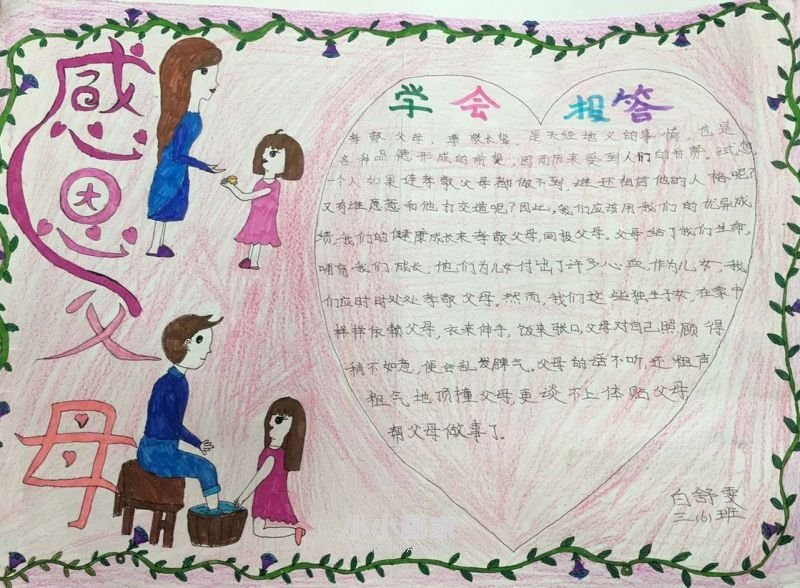 感恩父母
学会 报答
孝敬父母，尊敬长辈，是天经地义的事情，也是
各种品德形成的前提，因而历来受到人们的称赞。试想，
一个人如果连孝敬父母都做不到，谁还相信他的人格呢？
又有谁愿意和他打交道呢？因此，我们应该用我们的优异成
绩，我们的健康成长来孝敬父母，回报父母。父母给了我们生命，
哺育我们成长，他们为儿女付出了许多心血，作为儿女，我
们应时时处处孝敬父母。然而，我们这些独生子女，在家中
样样依赖父母，衣来伸手，饭来张口，父母对自己照顾得
稍不如意，便会乱发脾气。父母的话不听，还粗声
粗气地顶撞父母，更谈不上体贴父母，
帮父母做事了。
白舒雯
三（6）班